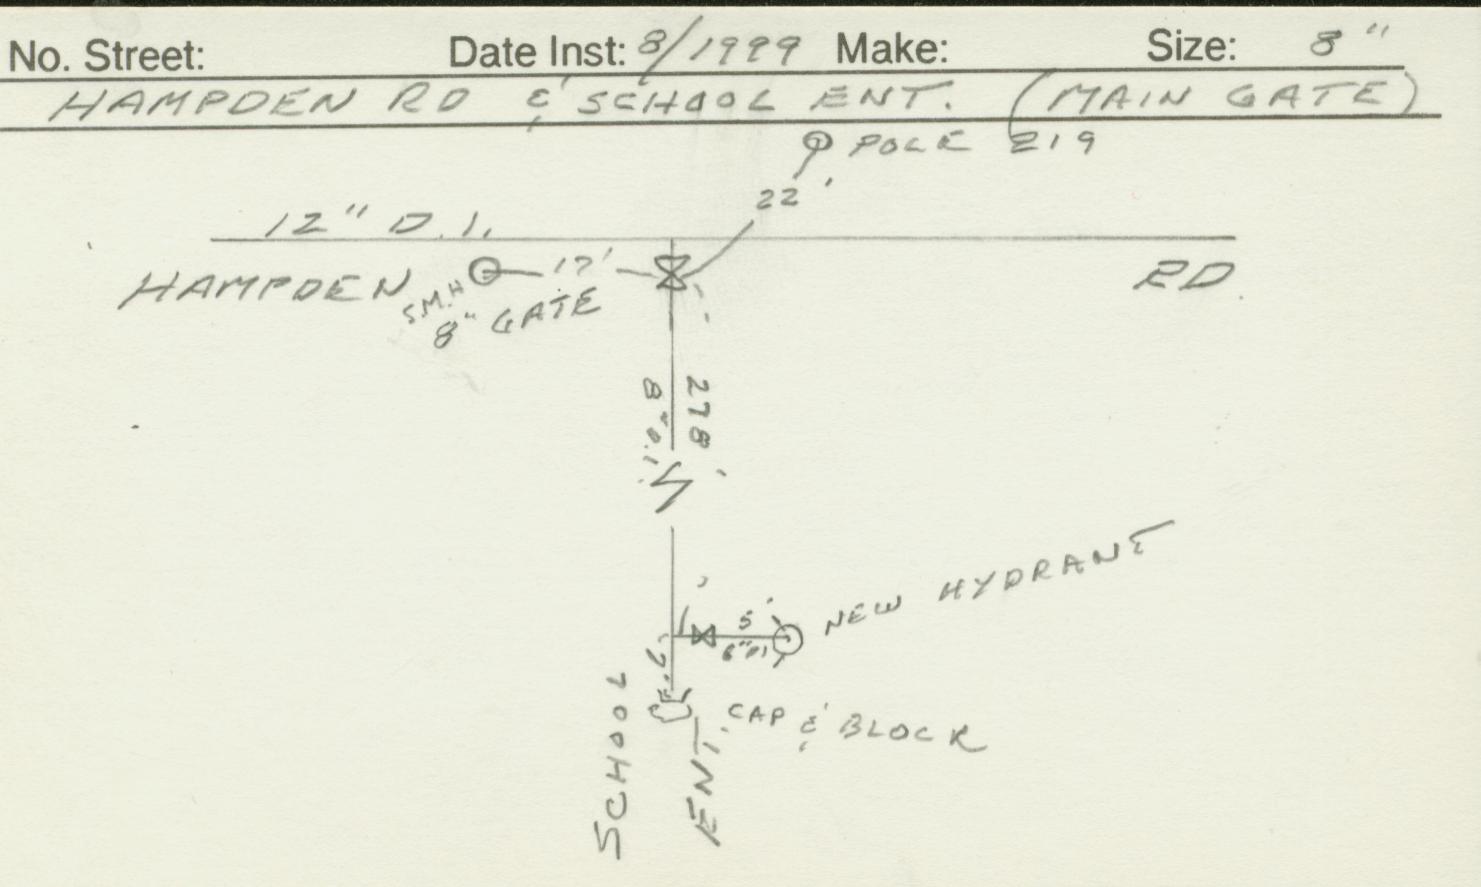 No. Street: Date Inst: 8/1999 Make: Size: 8"
HAMPDEN RD & SCHOOL ENT. (MAIN GATE)
POLE 219
22'
12" D.I.
HAMPDEN S.M.H 17' RD.
8" GATE
8" D.I. 278'
1'
5' NEW HYDRANT
6" DI
7'
CAP & BLOCK
SCHOOL ENT.